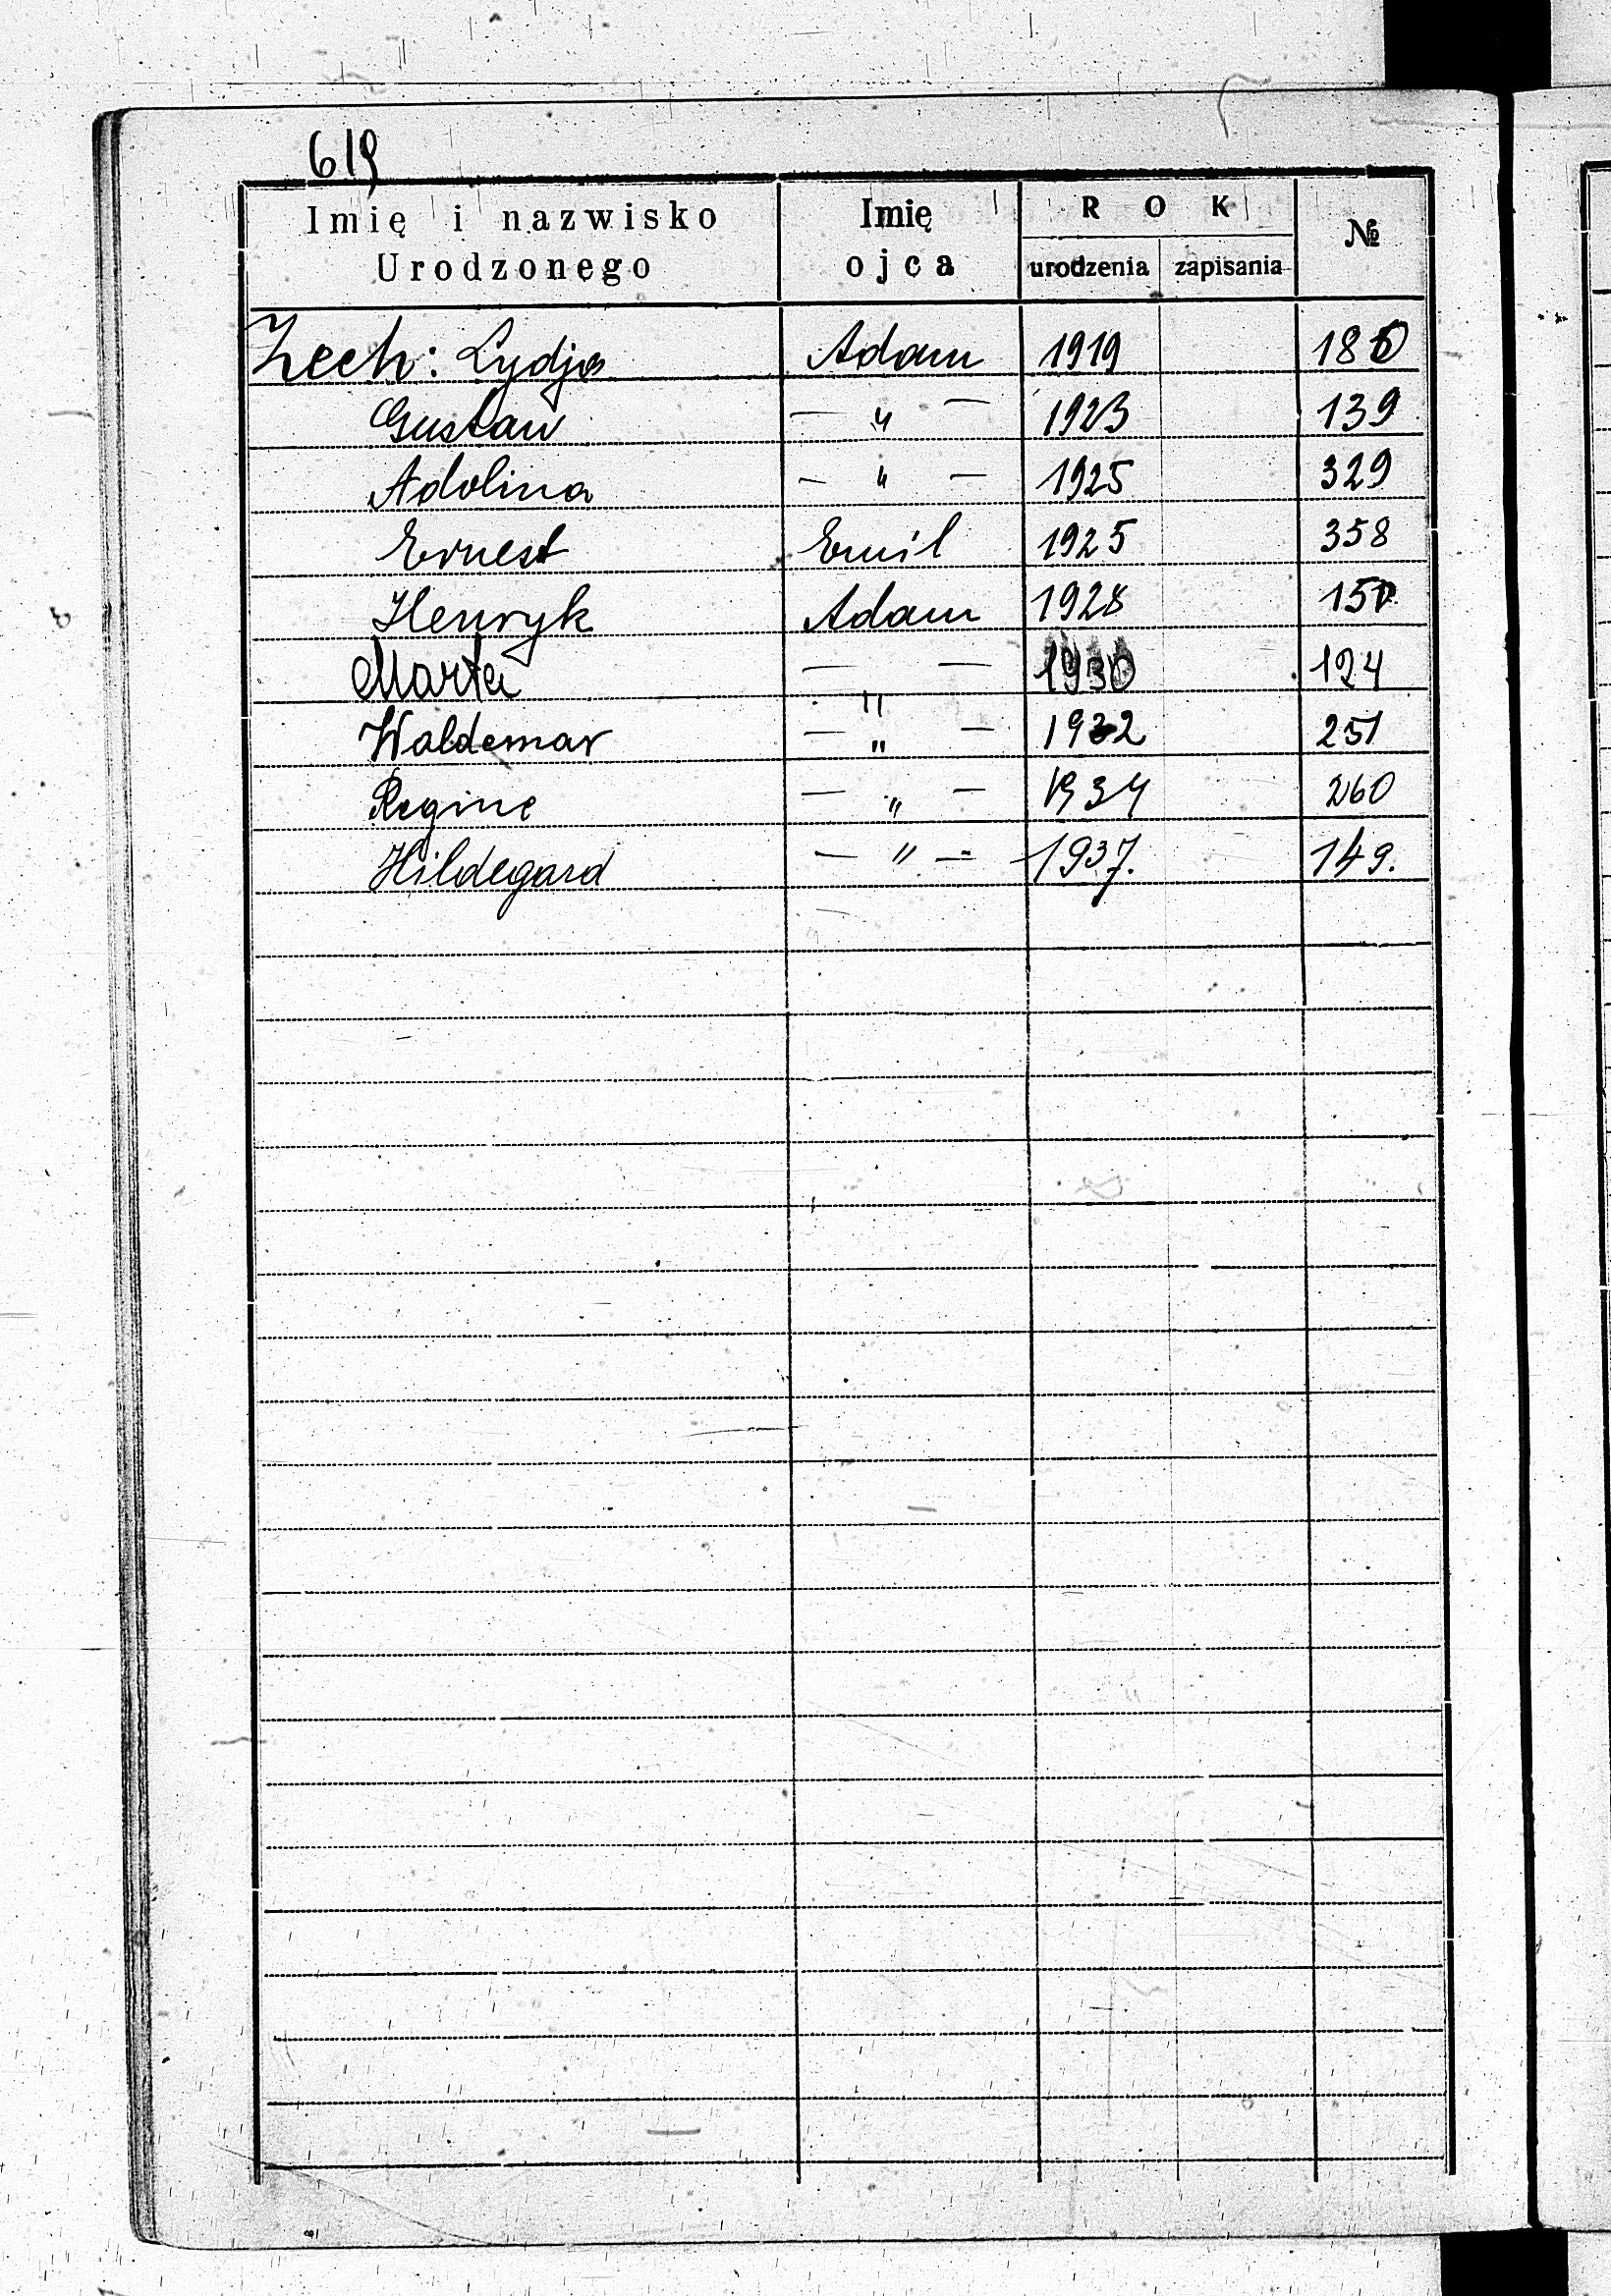 619
Imię i nazwisko Urodzonego Imię ojca ROK urodzenia zapisania №
Zech: Lydja Adam 1919 180
Gustaw — " — 1923 139
Adolina — " — 1925 329
Ernest Emil 1925 358
Henryk Adam 1928 150
Marta — " — 1930 124
Waldemar — " — 1932 251
Regine — " — 1934 260
Hildegard — " — 1937. 149.